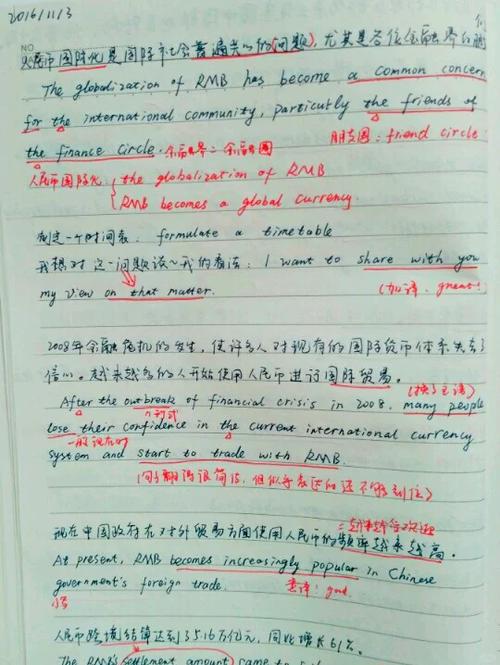 2016/11/13
人民币国际化是国际社会普遍关心的(问题),尤其是各位金融界的
The globalization of RMB has become a common concern
for the international community, particutly the friends of
the finance circle. 金融界 = 金融圈 朋友圈: friend circle
人民币国际化: { the globalization of RMB
RMB becomes a global currency.
制定一个时间表: formulate a timetable
我想对这一问题谈一下我的看法: I want to share with you
my view on that matter. (加译, great!)
2008年金融危机的发生,使许多人对现有的国际货币体系失去了
信心。越来越多的人开始使用人民币进行国际贸易。
(换了主语)
After the outbreak of financial crisis in 2008, many people
lose their confidence in the current international currency
一般现在时
system and start to trade with RMB.
(句子翻得很简洁,但似乎表达的还不够到位)
=越来越受欢迎
现在中国政府在对外贸易方面使用人民币的频率越来越高。
At present, RMB becomes increasingly popular in Chinese
government's foreign trade. 意译: good
人民币跨境结算达到3516万亿元,同比增长61%。
The RMB's settlement amount came to